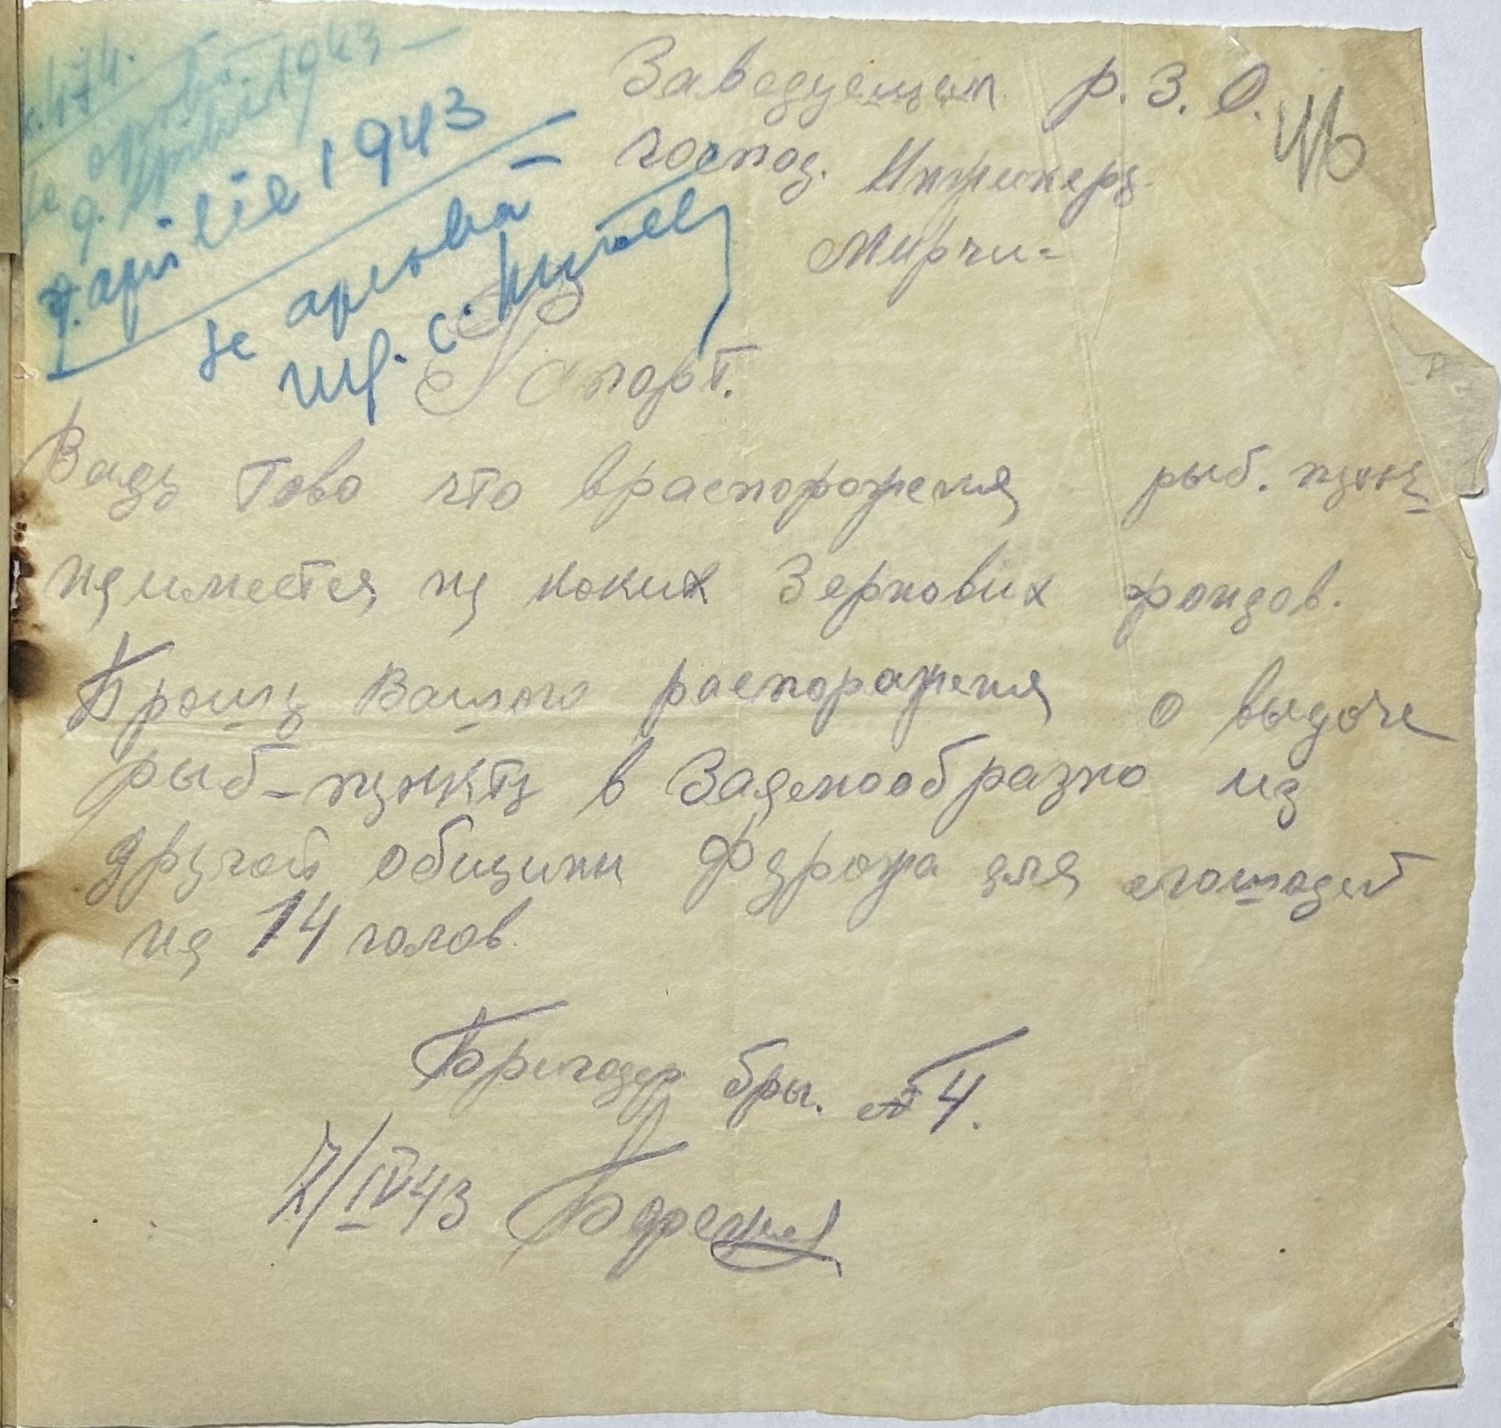 174.
1943
9. aprilie 1943
se aproba
Заведующим Р. З. О.
господ. Инженеру
Мирчи-
Рапорт.
Ввиду Тово что враспоряженея рыб. пунк
неимеетея не каких Зерновых фондов.
Прошу Вашого распоряженея о выдаче
рыб-пункту в Заемообразно из
другой общины Фуража для лошадей
на 14 голов.
Бригадир бры. № 4.
7/IV 43